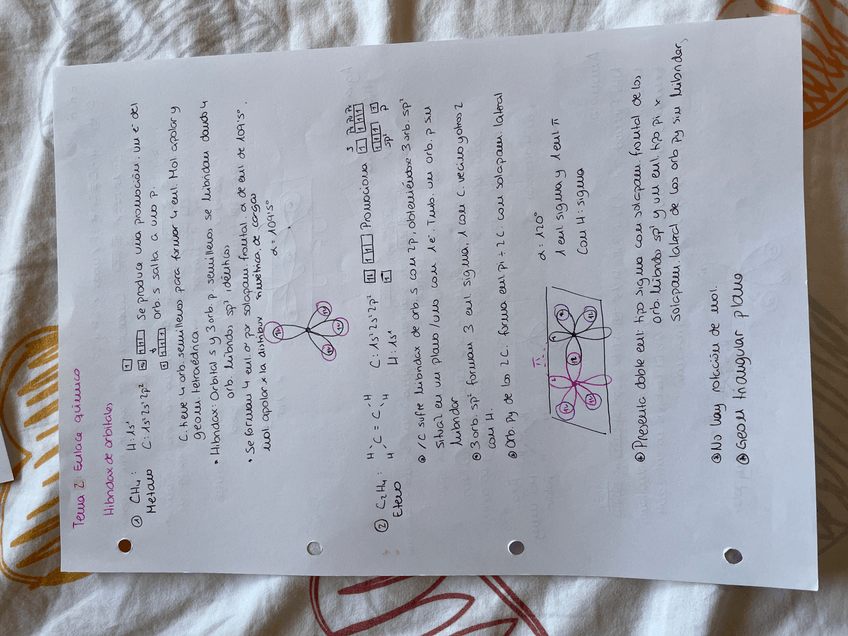 Tema 2: Enlace químico
Hibridax de orbitales
① CH₄: H: 1s¹ Se produce una promoción: un e⁻ del
Metano C: 1s²2s²2p² orb. s salta a uno p.
C. tiene 4 orb. semillenos para formar 4 enl. Mol apolar y
geom tetraédrica.
• Hibridax: Orbital s y 3 orb. p semillenos se hibridan dando 4
orb. híbridos sp³ idénticos
• Se forman 4 enl σ por solapam frontal. α de enl de 109'5°.
Mol apolar x la distribux simétrica de cargas
α = 109'5°
② C₂H₄: H C = C H C: 1s²2s²2p² Promociona s p p p
Eteno H H H: 1s¹ sp² p
/C sufre hibridax de orb. s con 2p, obteniéndose 3 orb. sp²
situad en un plano /uno con 1e⁻. Tmb. un orb. p sin
hibridar
3 orb. sp² forman 3 enl sigma, 1 con C vecino y otros 2
con H.
Orb. Py de los 2C. forma enl pi ÷ 2C con solapam. lateral
π
α = 120°
1 enl sigma y 1 enl π
Con H: sigma
Presenta doble enl: tipo sigma con solapam frontal de los
orb. híbrido sp² y un enl. tipo pi x
solapam lateral de los orb Py sin hibridar,
No hay rotación de mol.
Geom triangular plana